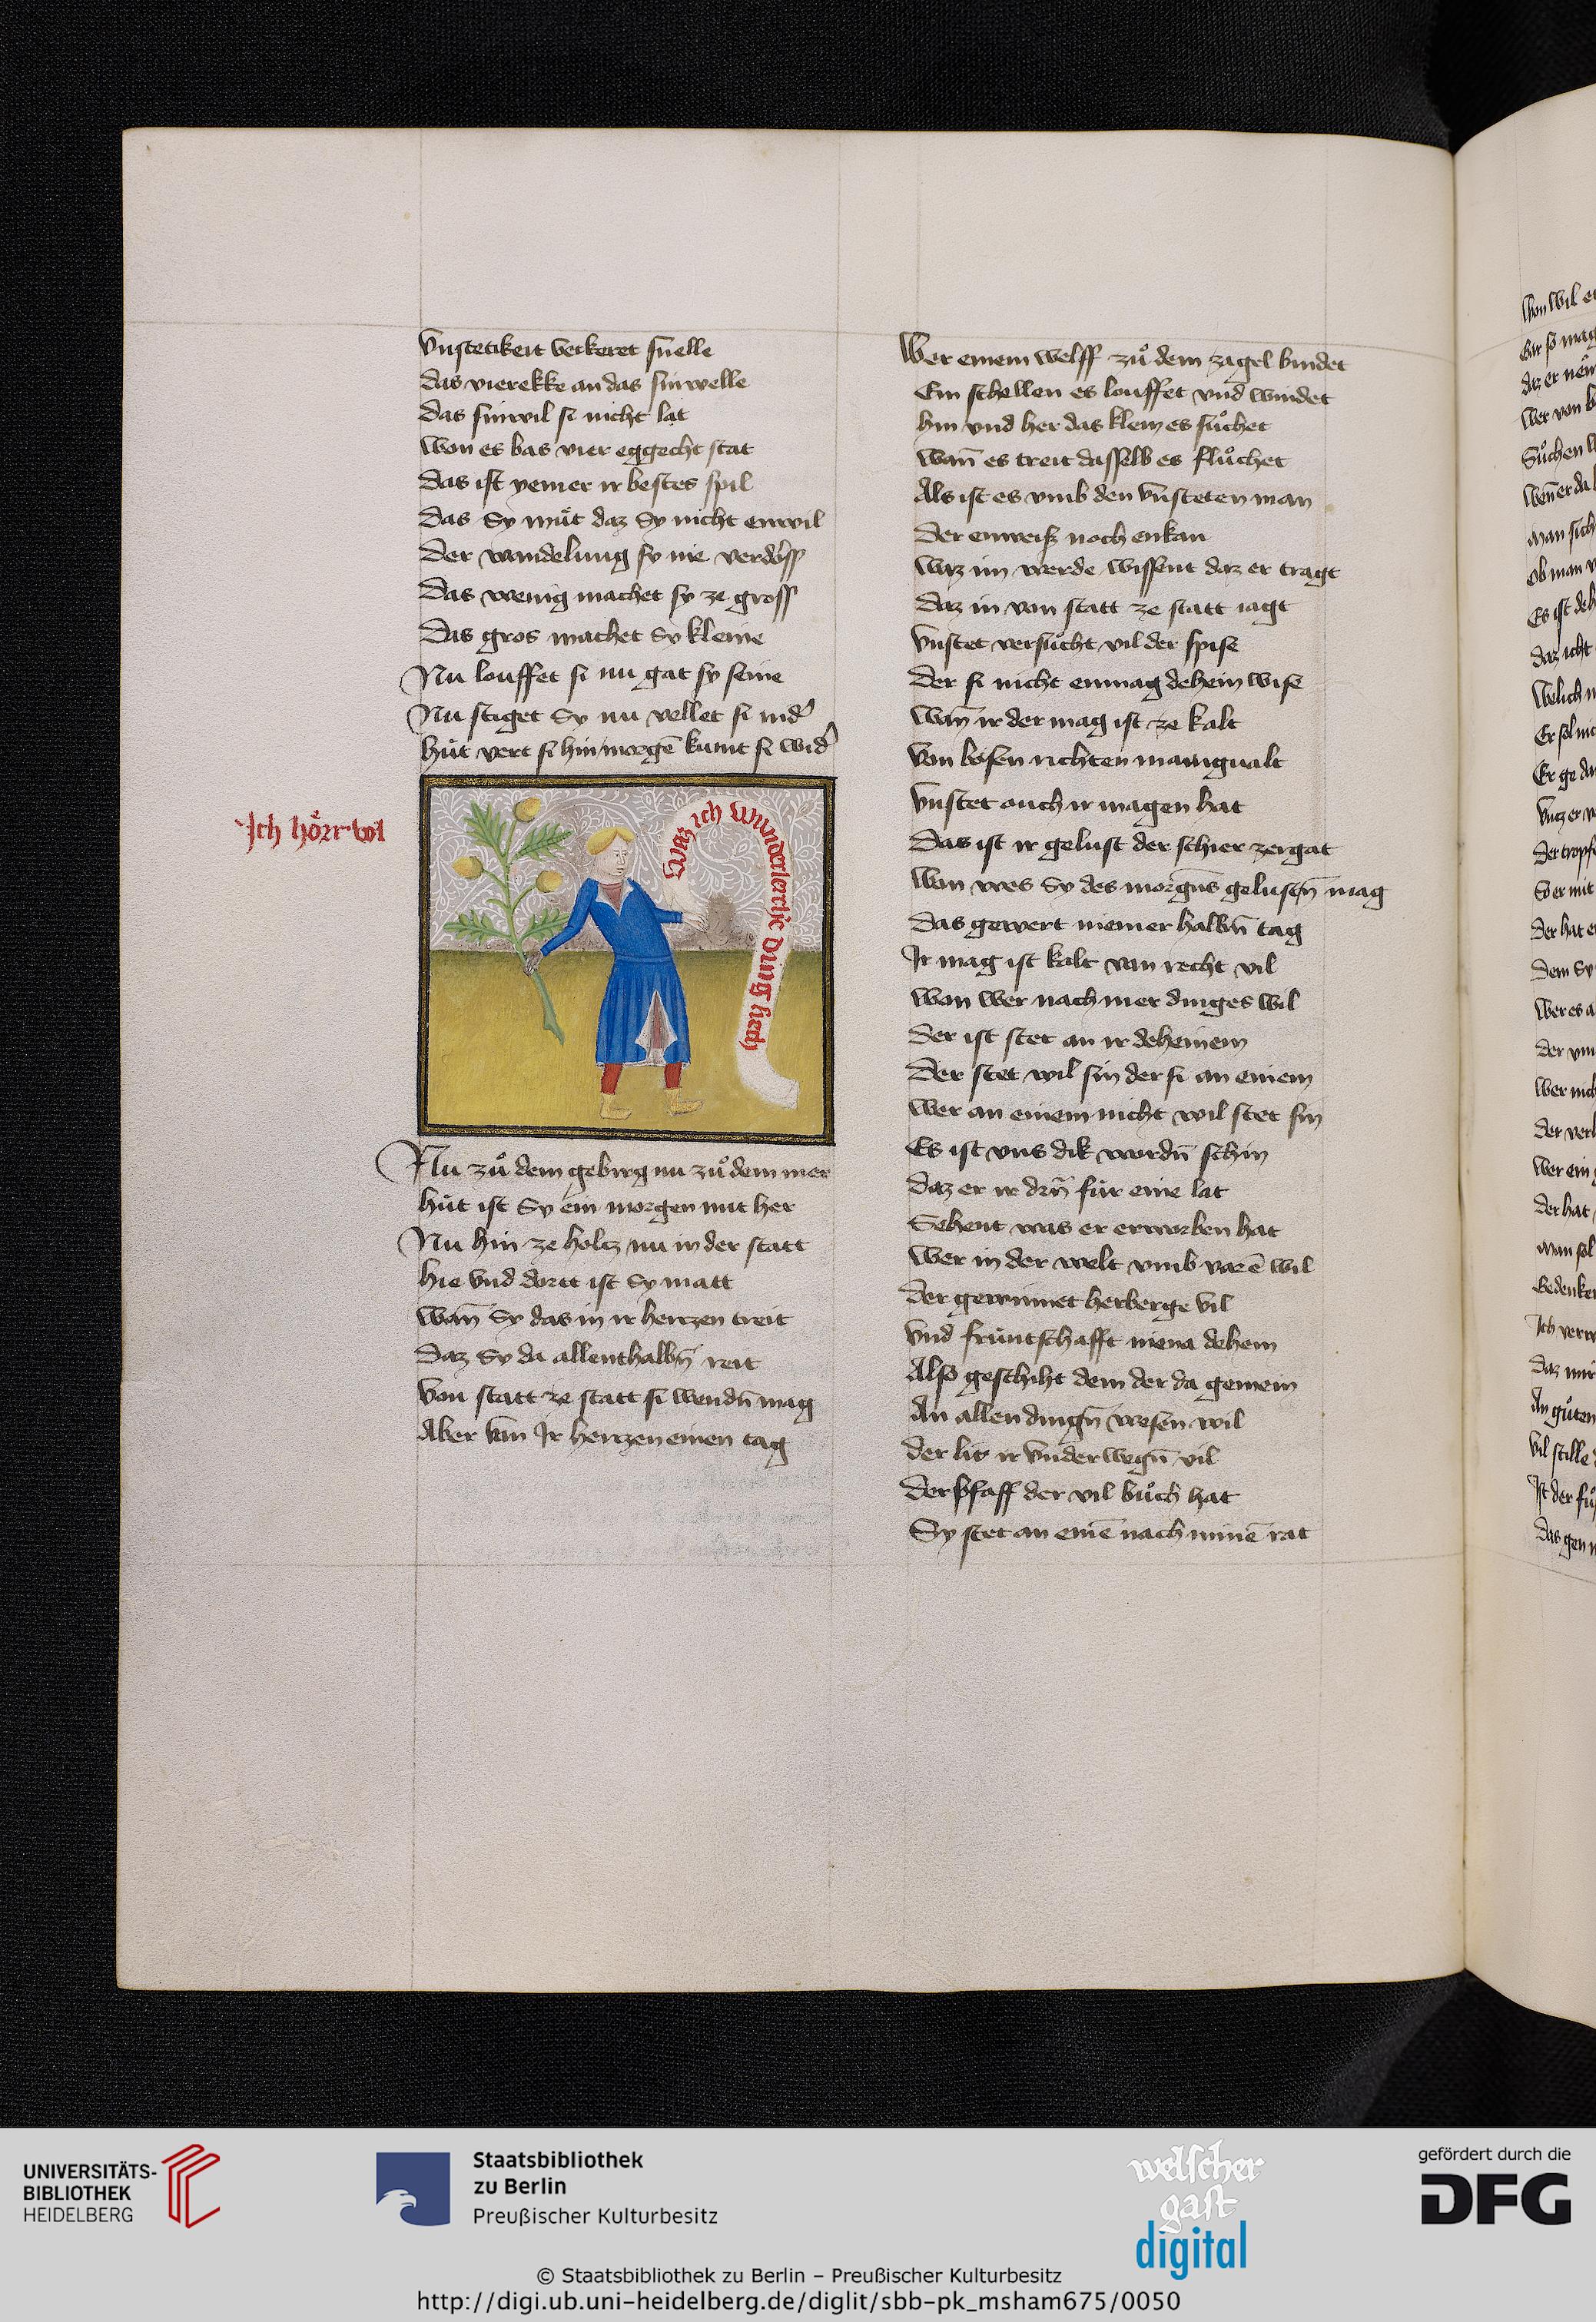 Vnstetikeit verkeret snelle
das vierekke an das sinwelle
das sinwil si nicht lat
won es bas vier eggecht stat
das ist yemer ir bestes spil
das Sy muͤt daz Sy nicht enwil
Der wandelung sy nie verdoͤss
Das wenig machet sy ze gross
Das gros machet Sy kleine
Nu louffet si nu gat sy seine
Nu stiget Sy nu vellet si nidˀ
huͤt vert si hin morgē kumt si widˀ
Ich hoͤrr wol
Waz ich wunderleiche ding hech
Nu zuͦ dem gebirg nu zuͦ dem mer
huͤt ist Sy ein morgen mit her
Nu hin ze holtz nu in der statt
hie vnd dortt ist Sy matt
wan̄ Sy das in ir hertzen treit
Daz Sy da allenthalbn̄ reit
Von statt ze statt si wendn̄ mag
Aber van Ir hertzen einen tag
Wer einem welff zuͦ dem zagel bindet
Ein schellen es louffet vnd windet
hin vnd her das klein es suͦchet
wan̄ es treit dasselb es fluͦchet
Als ist es vmb den vnsteten man
der enweisz noch enkan
waz im werde wissent daz er tragt
daz in von statt ze statt iagt
Vnstet versuͦcht vil der spise
der si nicht enmag dehein wise
wan̄ ir der mag ist ze kalt
Von boͤsen richten manigualt
Vnstet ouch ir magen hat
Das ist ir gelust der schier zergat
Won wes Sy des morgns gelusen̄ mag
das gewert niemer halbn̄ tag
Ir mag ist kalt van recht vil
won wer nach mer dinges wil
der ist stet an ir deheinem
Der stet wil sin der si an einem
wer an einem nicht wil stet sin
Es ist vns dik wordn̄ schin
daz er ir drn̄ fuͤr eine lat
Sehent was er erworben hat
wer in der welt vmb varē wil
der gewinnet herberge vil
vnd fruntschafft niena dehein
Also geschiht dem der da gemein
An allen dingn̄ wesen wil
der lit ir vnderwegn̄ vil
der pfaff der vil buͦch hat
Sy stet an einē nach minē rat
UNIVERSITÄTS-
BIBLIOTHEK
HEIDELBERG
Staatsbibliothek
zu Berlin
Preußischer Kulturbesitz
welscher
gast
digital
gefördert durch die
DFG
© Staatsbibliothek zu Berlin – Preußischer Kulturbesitz
http://digi.ub.uni-heidelberg.de/diglit/sbb-pk_msham675/0050